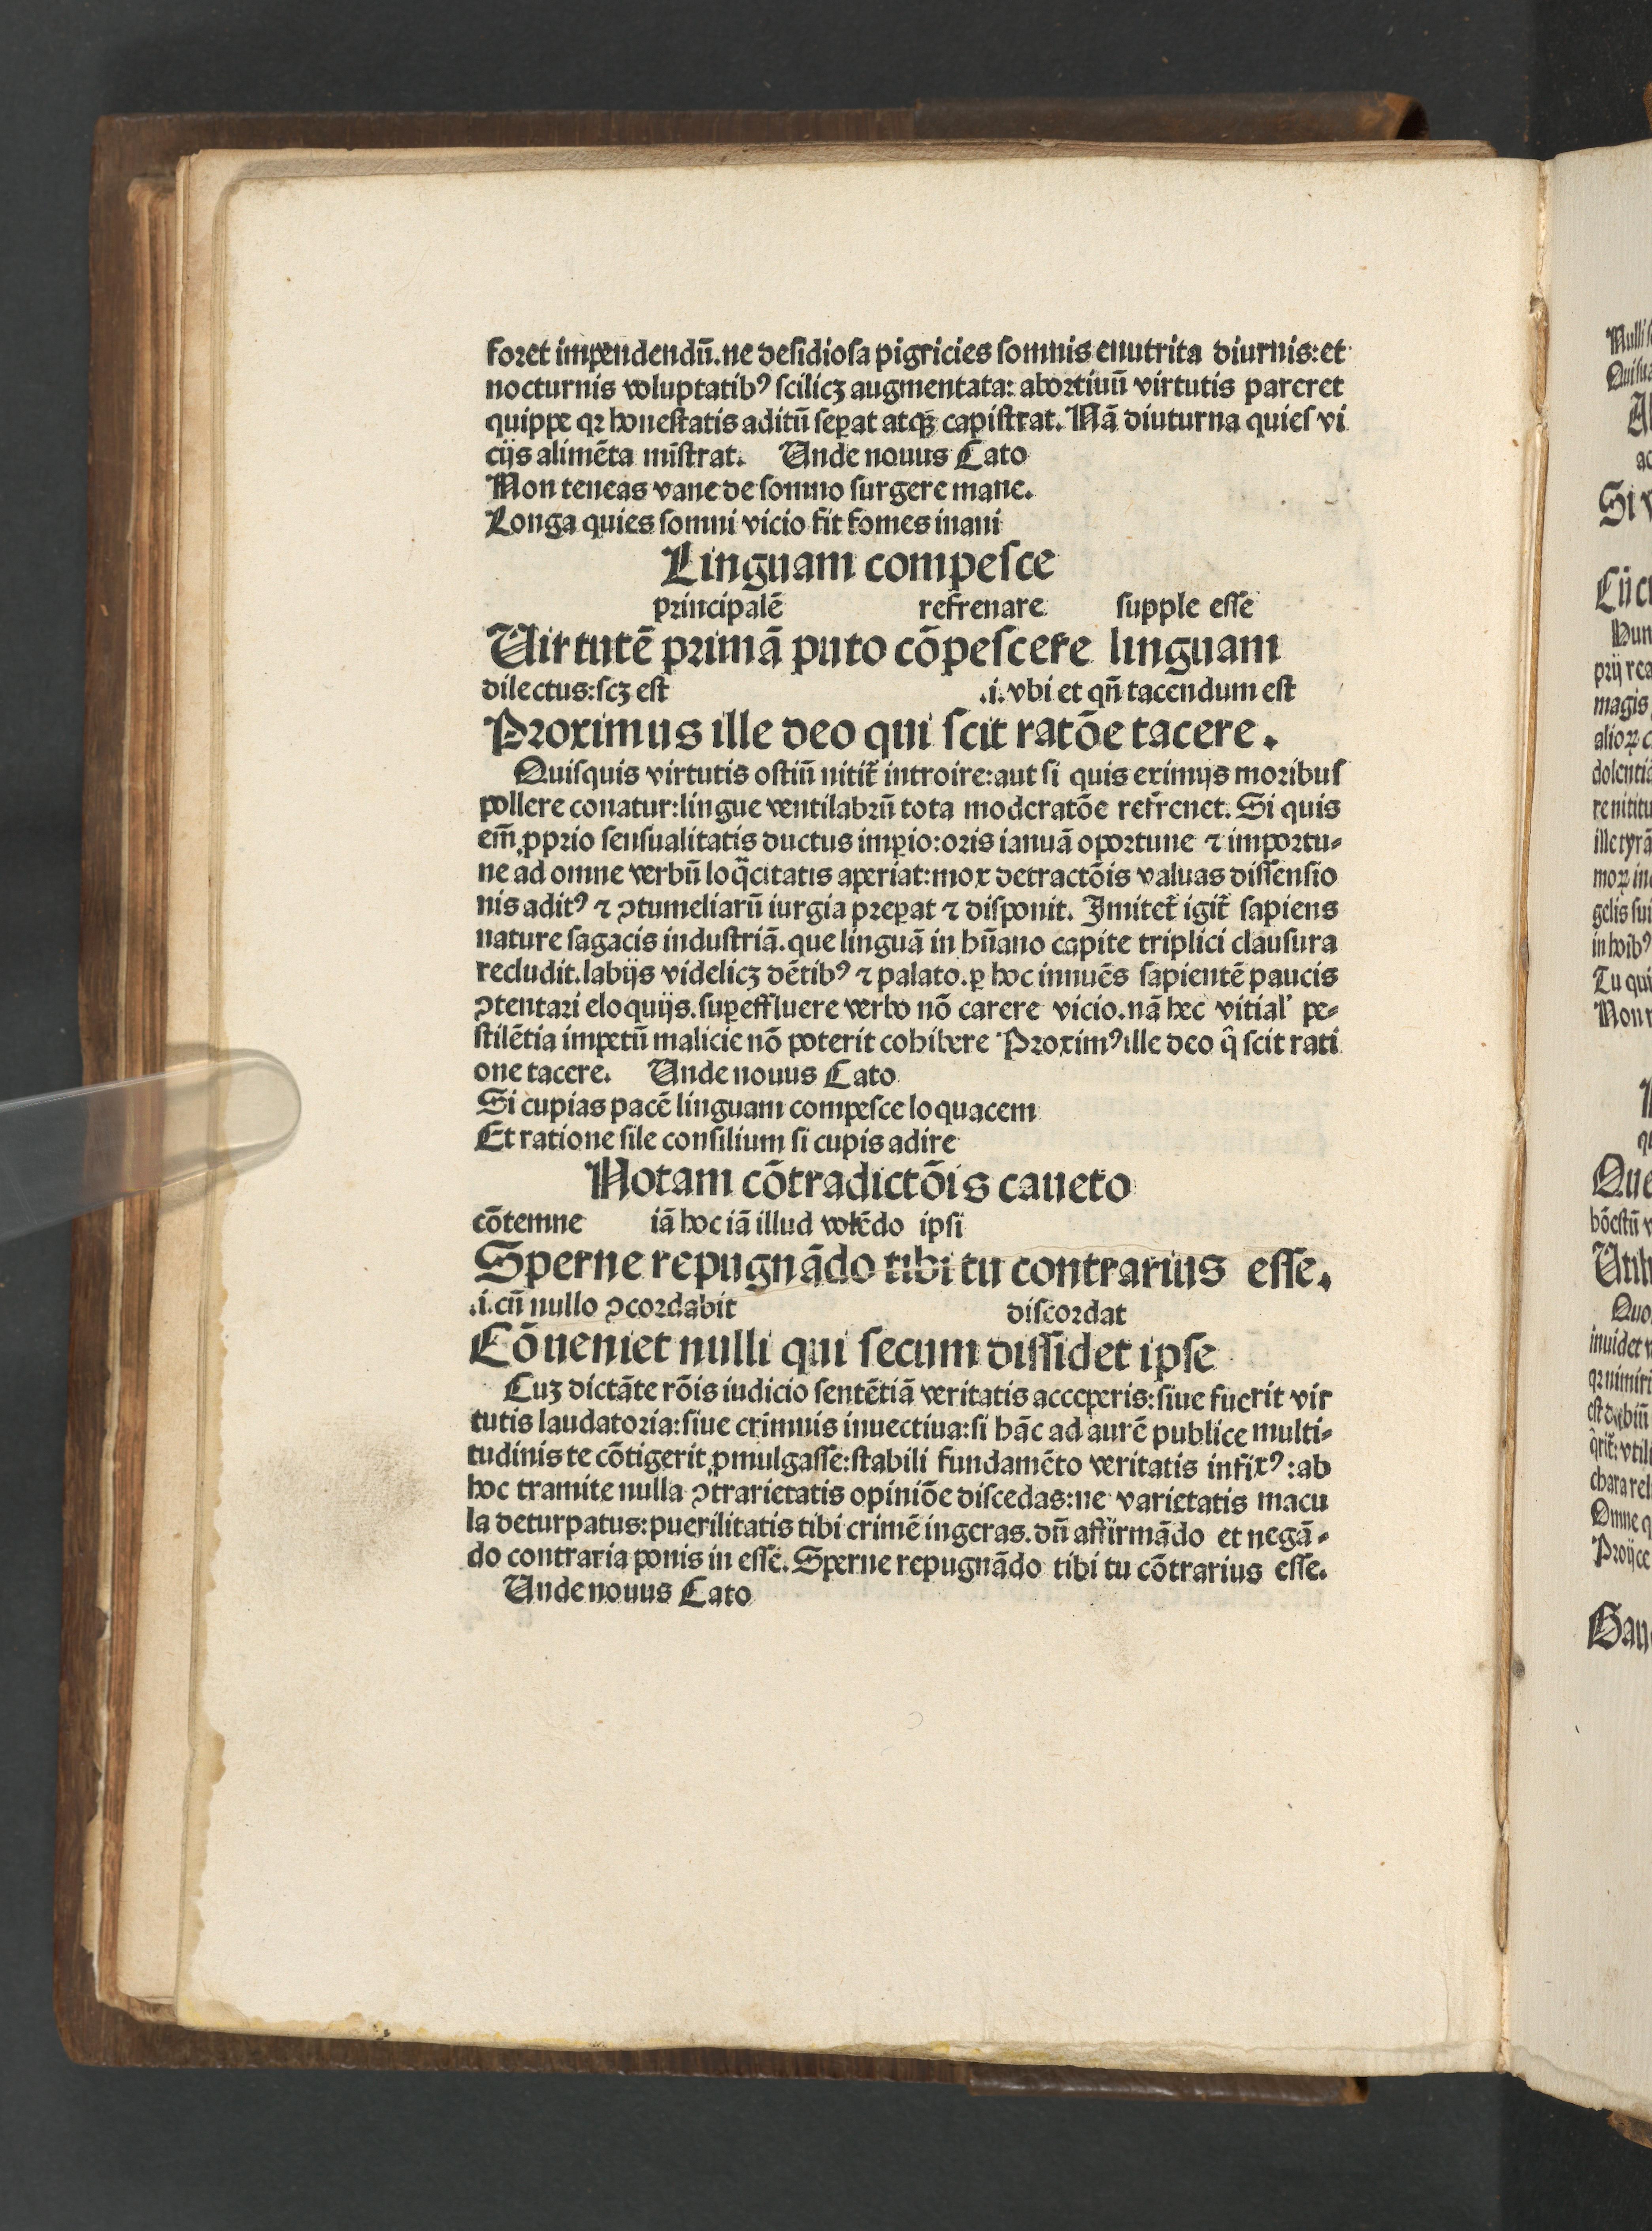 foret impendendū.ne desidiosa pigricies somnis enutrita diurnis:et
nocturnis voluptatibꝰ scilicꝫ augmentata: abortiuū virtutis pareret
quippe qꝛ honestatis aditū seꝑat atqꝫ capistrat. Nā diuturna quies vi
cijs alimēta mīstrat. Unde nouus Cato
Non teneas vane de somno surgere mane.
Longa quies somni vicio fit fomes inani
Linguam compesce
principalē refrenare supple esse
Uirtutē primā puto cōpescere linguam
dilectus:scꝫ est .i. vbi et qñ tacendum est
Proximus ille deo qui scit ratōe tacere.
Quisquis virtutis ostiū nitit̄ introire:aut si quis eximijs moribus
pollere conatur:lingue ventilabrū tota moderatōe refrenet. Si quis
em̄ ꝓprio sensualitatis ductus imꝑio:oris ianuā oportune ⁊ importu-
ne ad omne verbū loq̄citatis aperiat:mox detractōis valuas dissensio
nis aditꝰ ⁊ ꝯtumeliarū iurgia preꝑat ⁊ disponit. Imitet̄ igit̄ sapiens
nature sagacis industriā.que linguā in hūano capite triplici clausura
recludit.labijs videlicꝫ dētibꝰ ⁊ palato.ꝑ hoc innuēs sapientē paucis
ꝯtentari eloquijs.suꝑeffluere verbo nō carere vicio.nā hec vitial' pe-
stilētia impetū malicie nō poterit cohibere Proximꝰ ille deo q̂ scit rati
one tacere. Unde nouus Cato
Si cupias pacē linguam compesce loquacem
Et ratione sile consilium si cupis adire
Notam cōtradictōis caueto
cōtemne iā hoc iā illud volēdo ipsi
Sperne repugnādo tibi tu contrarius esse.
.i. cū nullo ꝯcordabit discordat
Cōueniet nulli qui secum dissidet ipse
Cuꝫ dictāte rōis iudicio sentētiā veritatis acceperis:siue fuerit vir
tutis laudatoria:siue criminis inuectiua:si hāc ad aurē publice multi-
tudinis te cōtigerit ꝓmulgasse:stabili fundamēto veritatis infixꝰ:ab
hoc tramite nulla ꝯtrarietatis opiniōe discedas:ne varietatis macu
la deturpatus:puerilitatis tibi crimē ingeras.dū affirmādo et negā-
do contraria ponis in esse. Sperne repugnādo tibi tu cōtrarius esse.
Unde nouus Cato